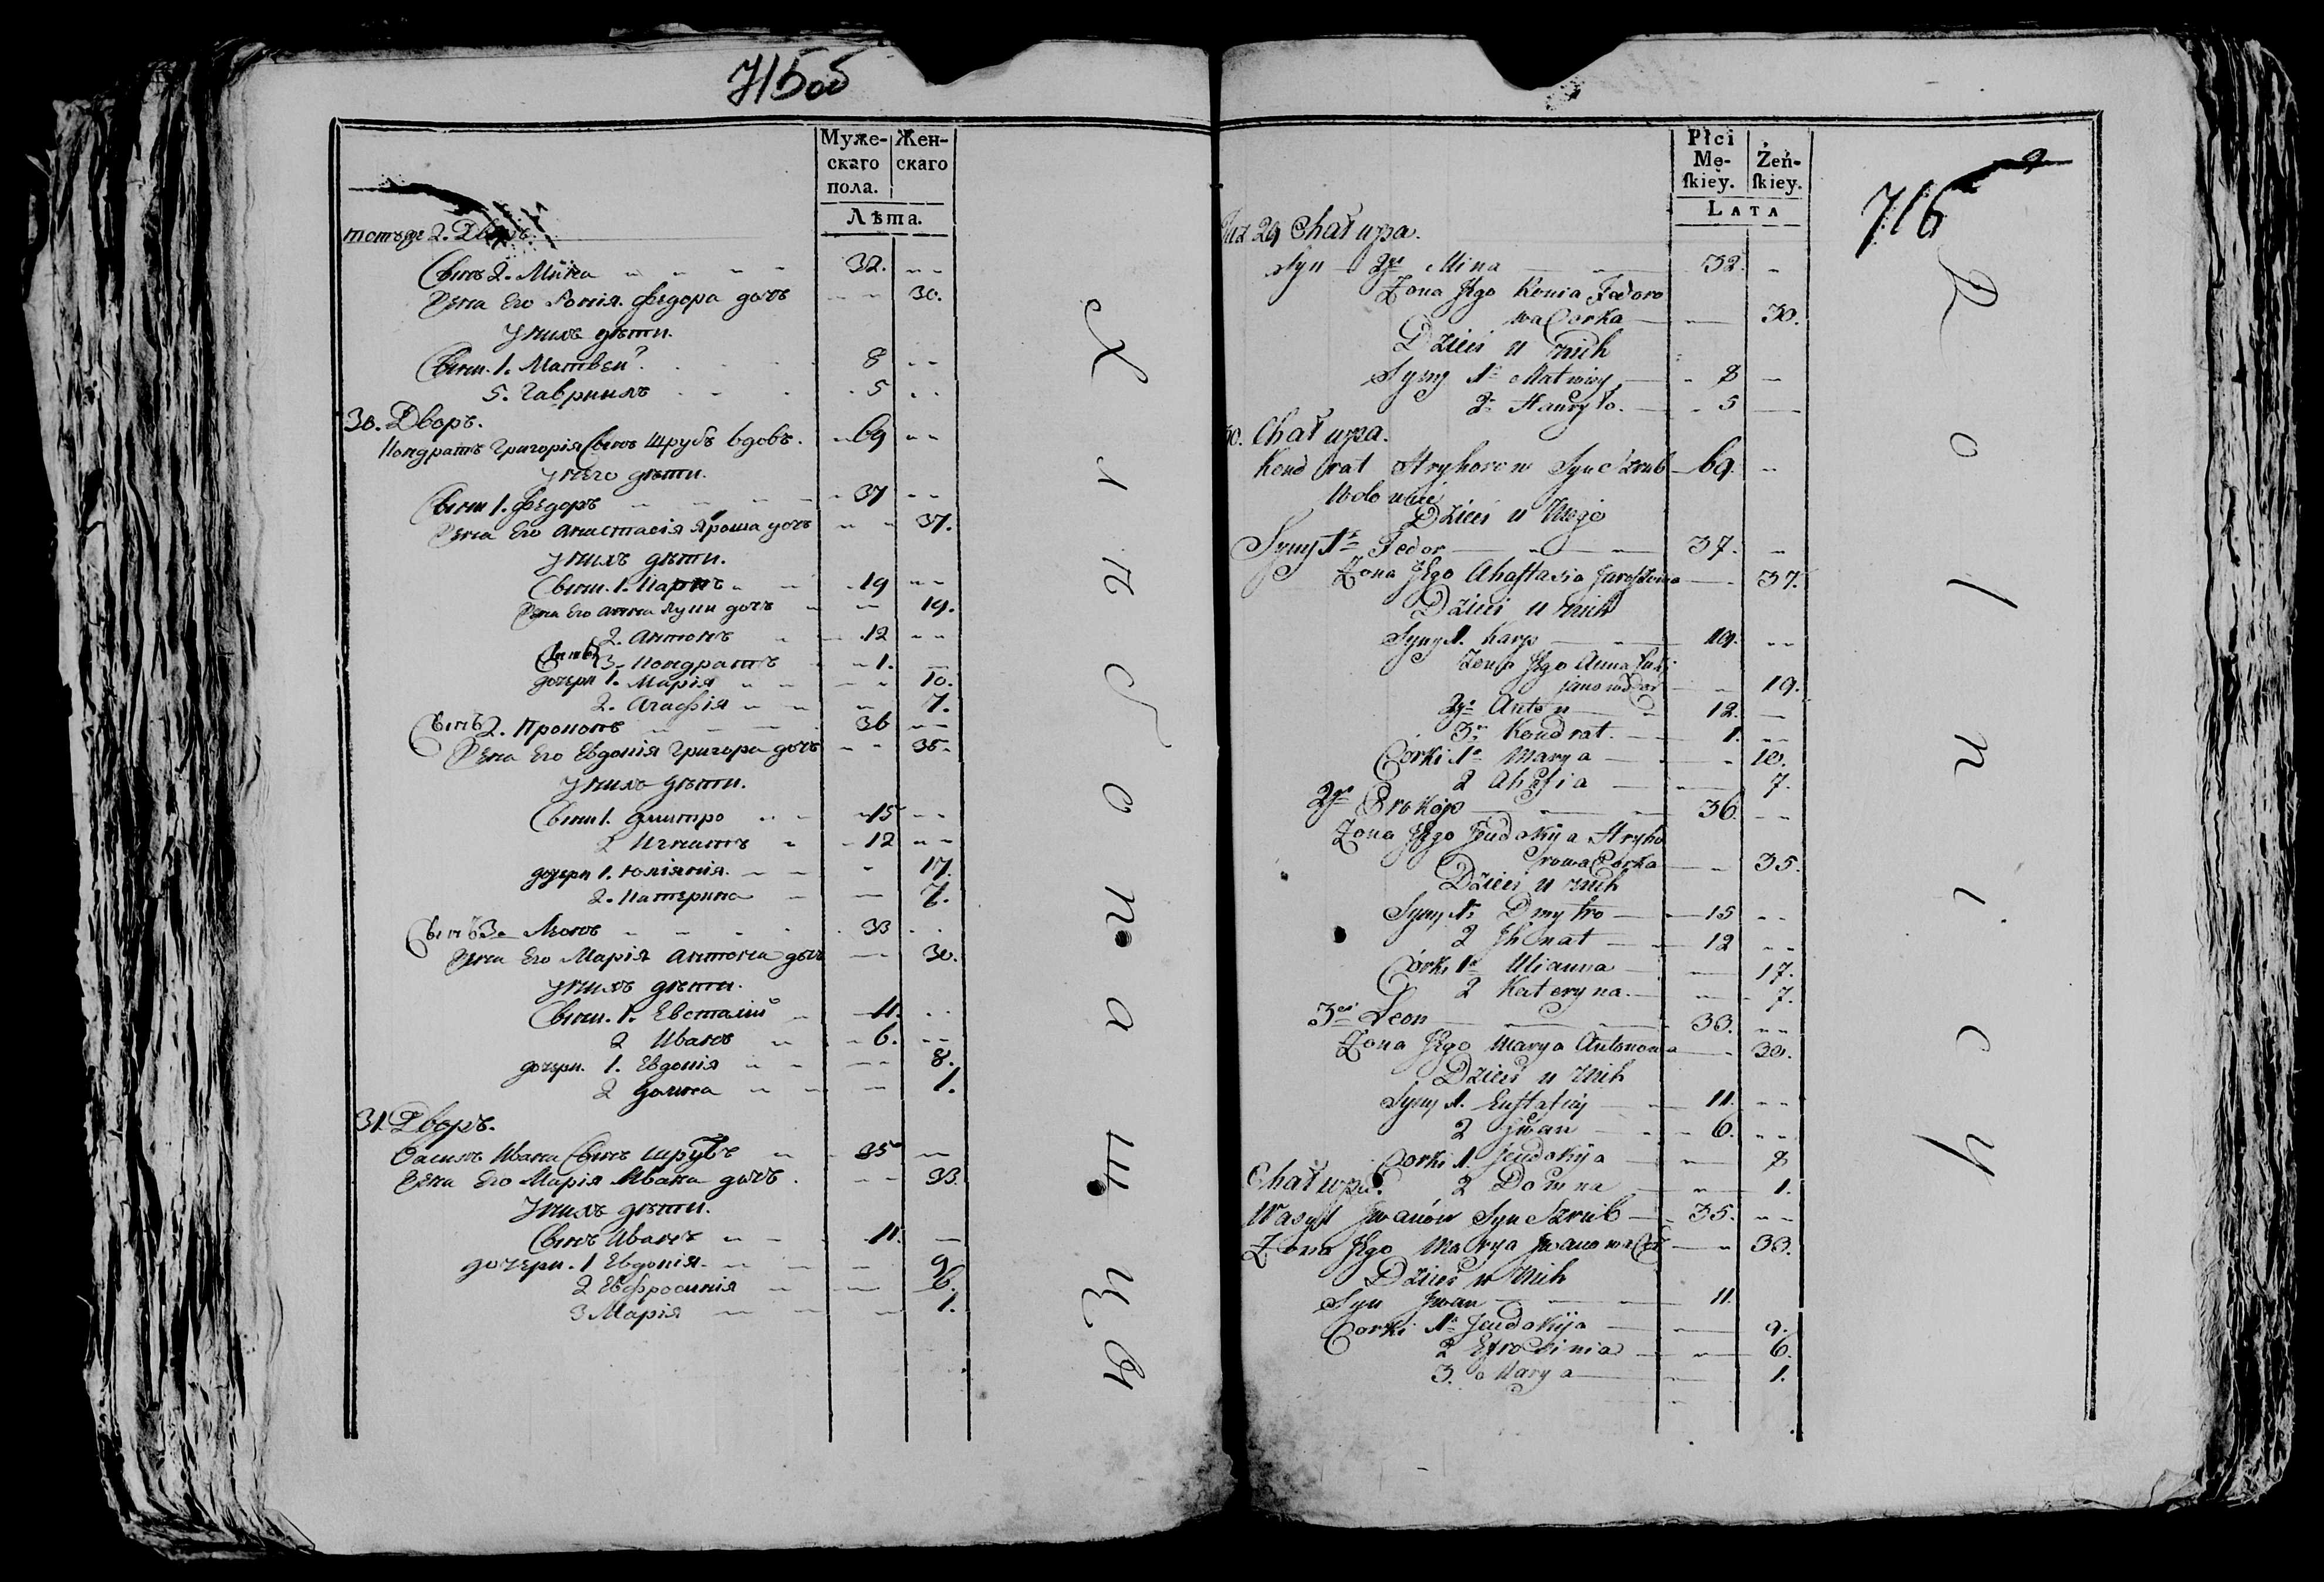 715об
Муже-
скаго
пола.
Жен-
скаго
Лѣта.
тотъже 2. Дворъ.
Сынъ 2. Мина 32.
Жена Его Ѯенія Федора дочь 30.
У нихъ дѣти.
Сыни. 1. Матвей 8
5. Гавриилъ 5
30. Дворъ.
Кондратъ Григорія Сынъ Шрубъ вдовъ. 69
У него дѣти.
Сыни 1. Федоръ 37
Жена Его Анастасія Яроша дочь 37.
У нихъ дѣти.
Сыни. 1. Карпъ 19
Жена Его Анна Луки дочь 19.
2. Антонъ 12
Сынъ 3. Кондратъ 1.
дочери 1. Марія 10.
2. Агафія 7.
Сынъ 2. Прокопъ 36
Жена Его Евдокія Григора дочь 35
У нихъ дѣти.
Сыни 1. Дмитро 15
2 Игнатъ 12
дочери 1. Юліянія 17.
2. Катерина 7.
Сынъ 3 Леонъ 33
Жена Его Марія Антона дочь 30.
У нихъ дѣти.
Сыни. 1. Евстафій 11.
2 Иванъ 6.
дочери. 1. Евдокія 8.
2 Домна 1.
31. Дворъ.
Василь Ивана Сынъ Шрубъ 35
Жена Его Марія Ивана дочь 33.
У нихъ дѣти.
Сынъ Иванъ 11.
дочери. 1 Евдокія 9
2 Евфросинія 6.
3 Марія 1.
Хлѣбопашцы
Płci
Mę-
ſkiey.
Żeń-
ſkiey.
LATA
716
29 Chałupa.
Syn 2gi Mina 32.
Żona Jego Xenia Fedoro
wa Corka 30.
Dzieci u nich
Syny 1. Matwiey 8
2. Hawryło. 5
30. Chałupa.
Kondrat Hryhorow Syn Szrub 69.
Wdowiec
Dzieci u Niego
Syny 1. Fedor 37.
Żona Jego Anaſtasia Jaroſzowa 37.
Dzieci u nich
Syny 1. Karp 19.
Żona Jego Anna Łuki
janowa Cor 19.
2gi Anton 12.
3. Kondrat. 1.
Corki 1. Marya 10.
2 Ahafia 7.
2gi Prokop 36.
Żona Jego Jeudokija Hryho
rowa Corka 35.
Dzieci u nich
Syny 1. Dmytro 15
2 Jhnat 12
Corki 1. Ulianna 17.
2 Kateryna. 7.
3ci Leon 33.
Żona Jego Marya Antonowa 30.
Dzieci u nich
Syny 1. Euſtafiy 11.
2 Jwan 6.
Corki 1. Jeudokija 8
2 Domna 1.
Chałupa.
Wasyl Jwanow Syn Szrub 35.
Żona Jego Marya Jwanowa Cor 33.
Dzieci u nich
Syn Jwan 11.
Corki 1. Jeudokija 9.
2 Efrosinia 6.
3. Marya 1.
Rolnicy